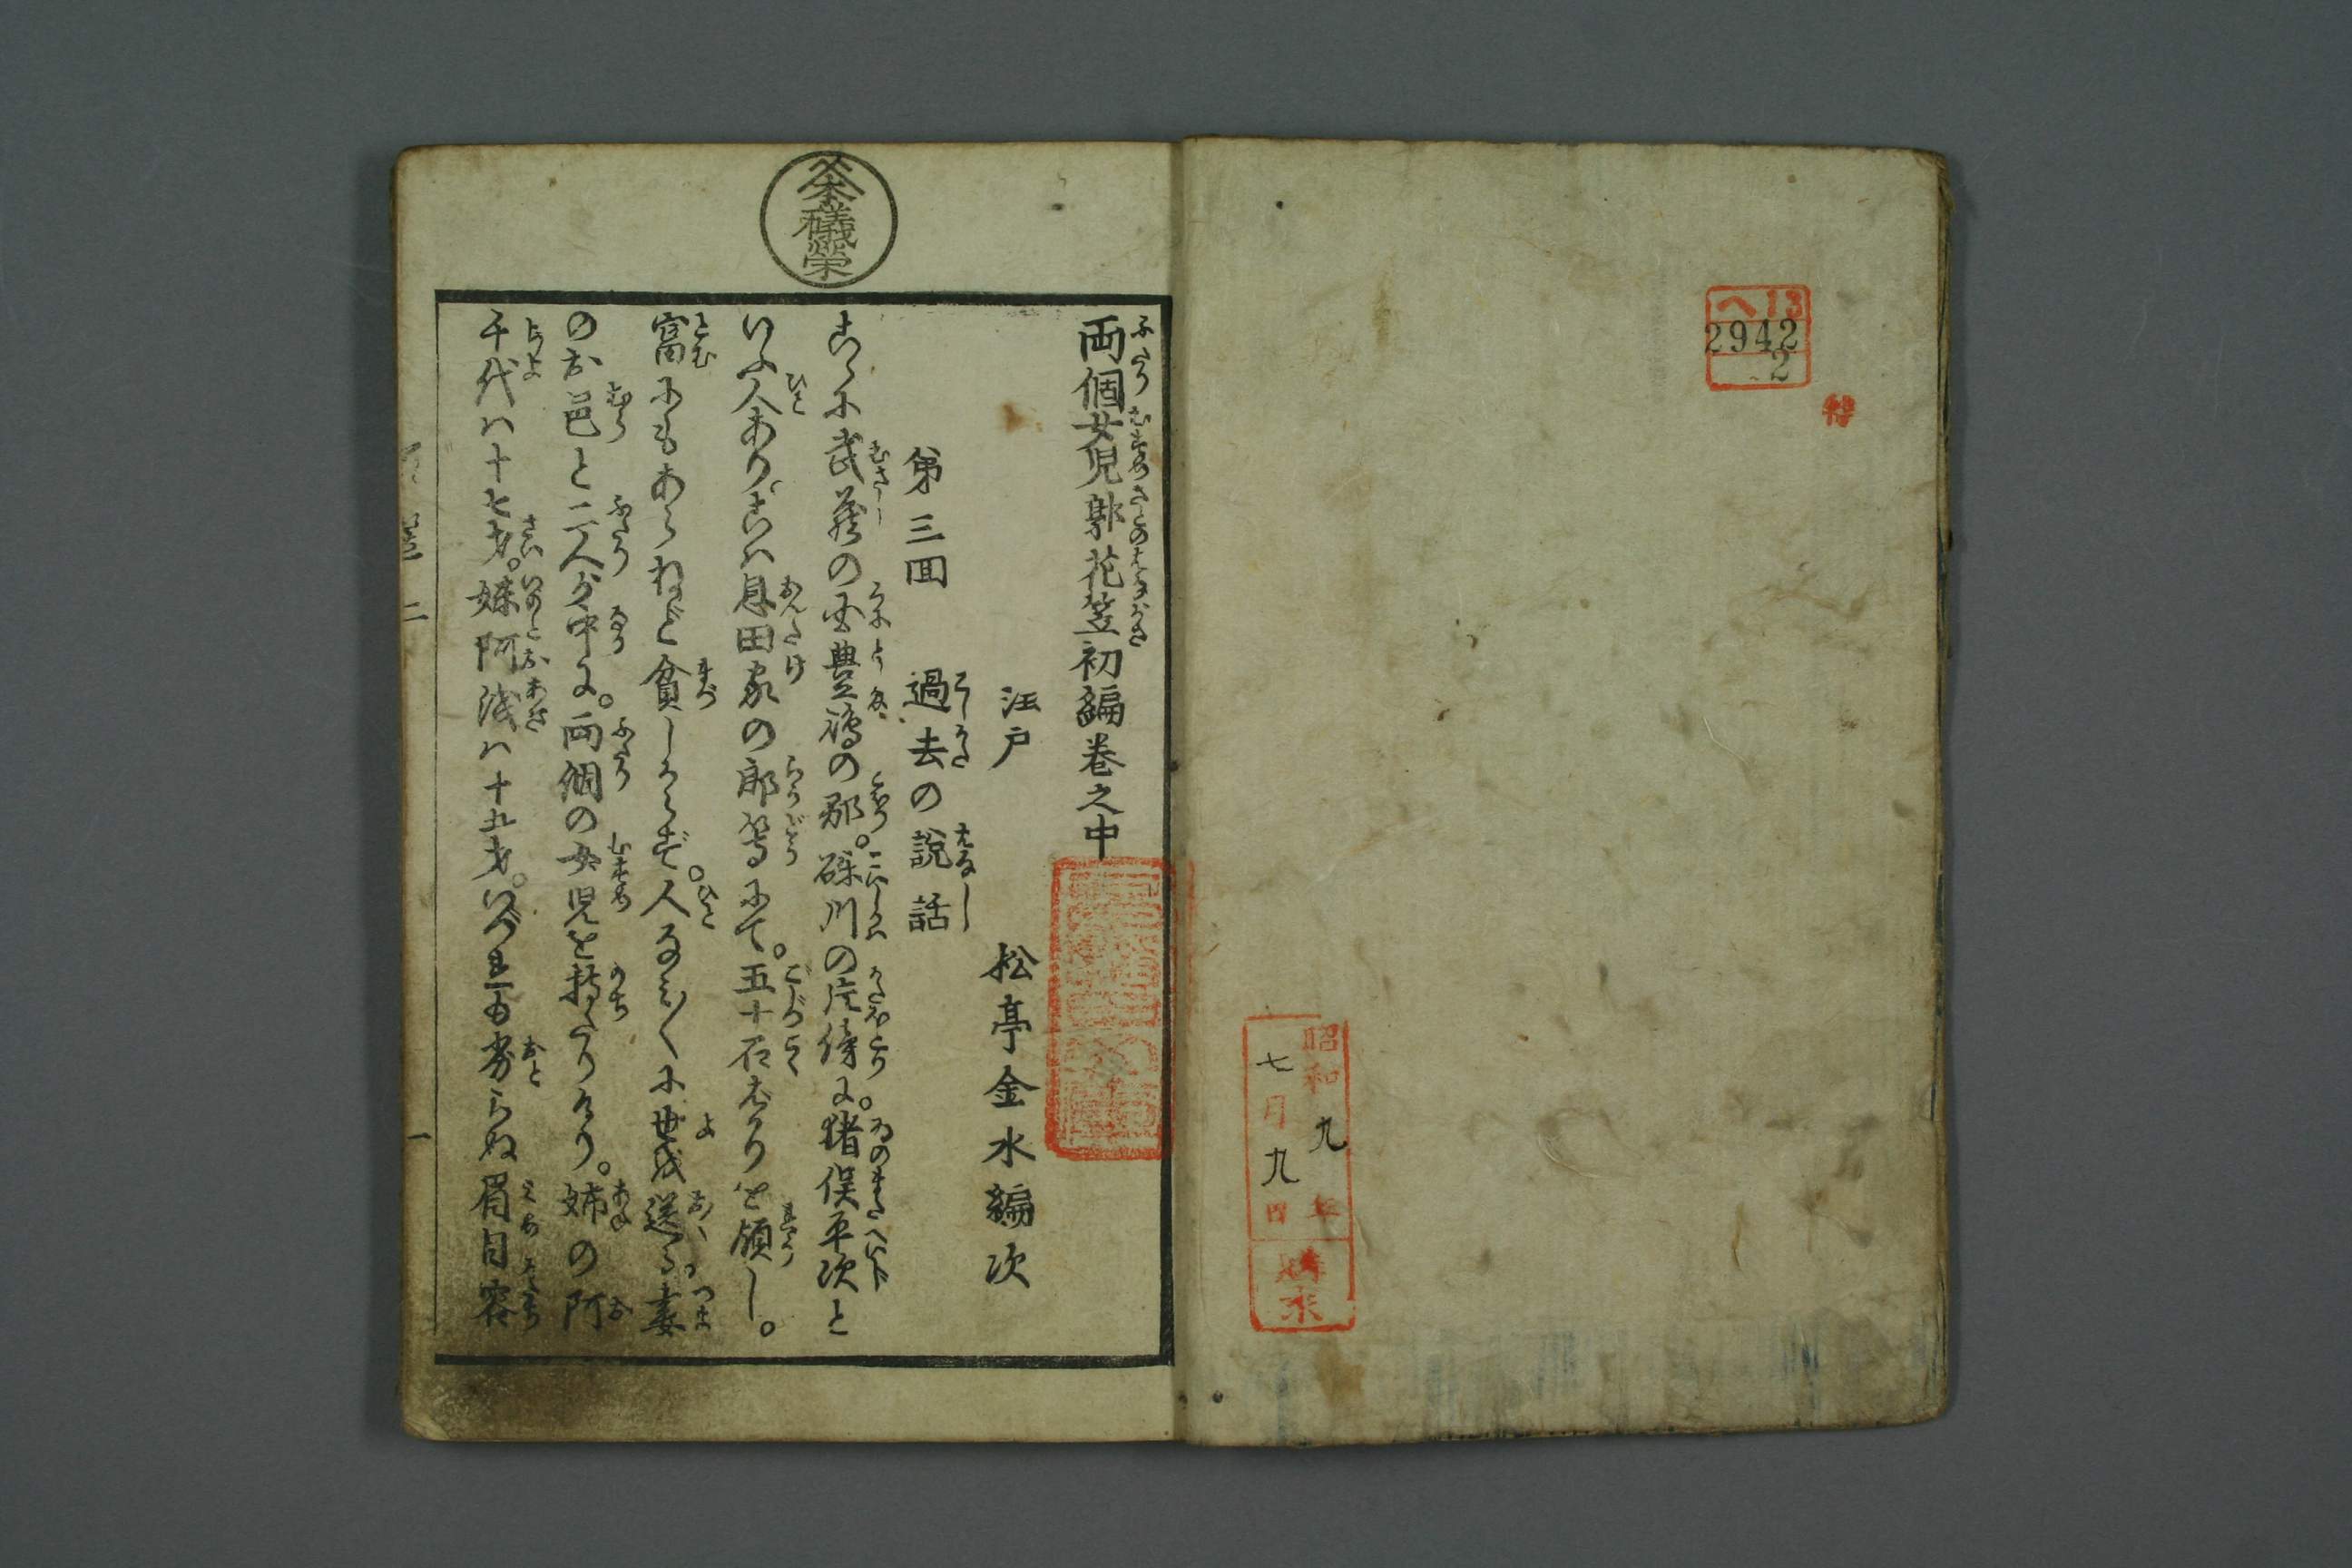 へ13
2942
2
昭和九年
七月九日
購求
両個女児郭花笠初編巻之中
江戸
松亭金水編次
第三回
過去の説話
こゝに武蔵の国豊嶋の郡。礫川の片傍に。猪俣平次と
いふ人あり。こハ恩田家の郎等にて。五十石ばかりを領し。
富にもあらねど貧しからず。人なみ〳〵に世を送る。妻
のお邑と二人が中に。両個の女児を持たりけり。姉の阿
千代ハ十七才。妹阿浅ハ十五才。いづれも劣らぬ眉目容
一